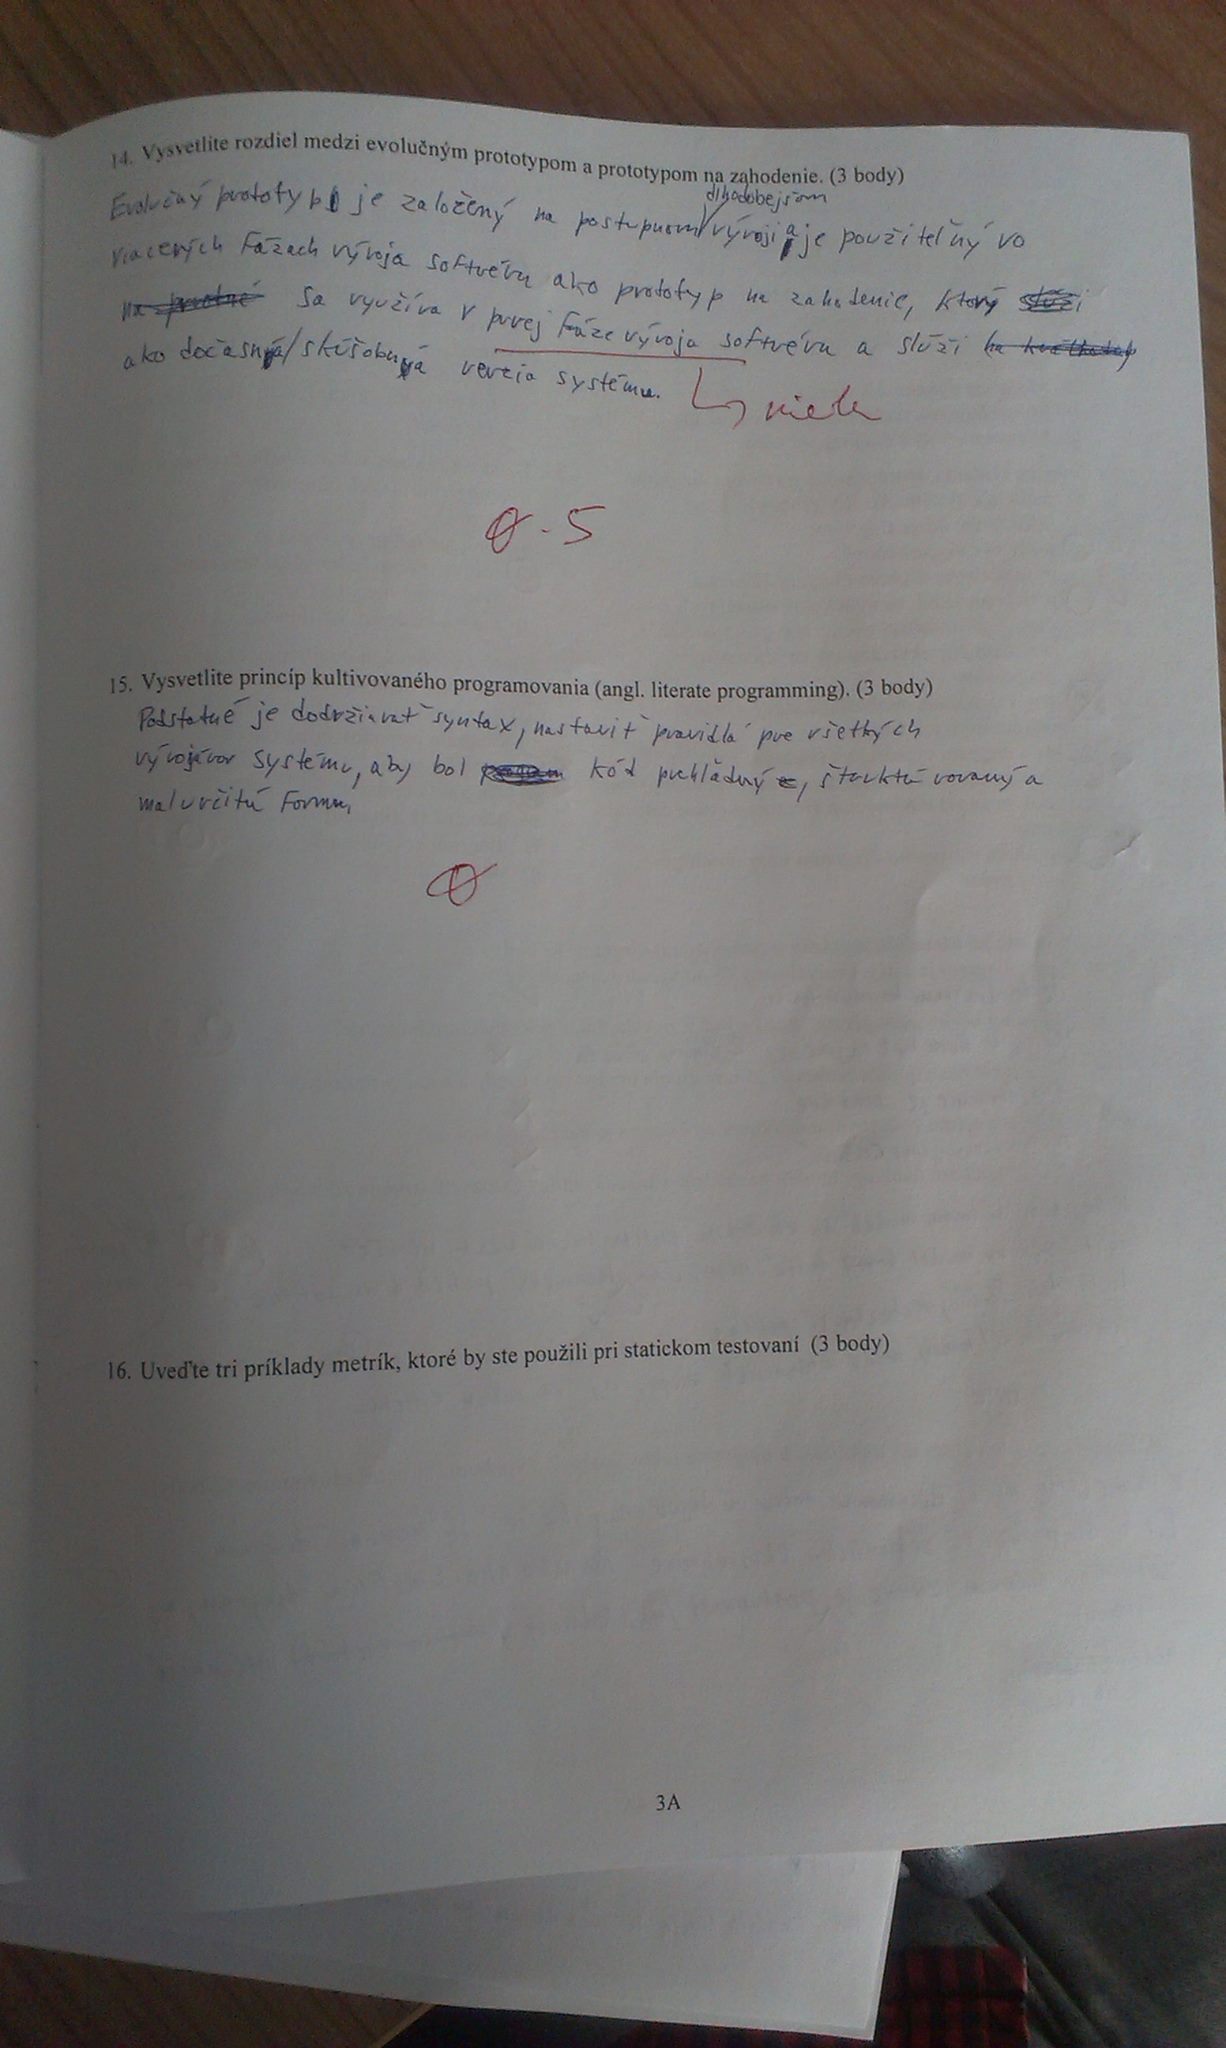 14. Vysvetlite rozdiel medzi evolučným prototypom a prototypom na zahodenie. (3 body)
dlhodobejšom
Evolučný prototyp je založený na postupnom vývoji a je použiteľný vo
viacerých fázach vývoja softvéru ako prototyp na zahodenie, ktorý slúži
sa využíva v prvej fáze vývoja softvéru a slúži
ako dočasná/skúšobná verzia systému.
0.5
15. Vysvetlite princíp kultivovaného programovania (angl. literate programming). (3 body)
Podstatné je dodržiavať syntax, nastaviť pravidlá pre všetkých
vývojárov systému, aby bol kód prehľadný, štruktúrovaný a
mal určitú formu.
0
16. Uveďte tri príklady metrík, ktoré by ste použili pri statickom testovaní (3 body)
3A